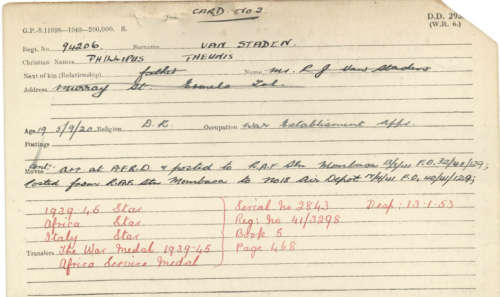 CARD No 2
G.P.-S.11698—1940—200,000. S.
D.D. 292
(W.R. 6.)
Regt. No. 94206. Surname VAN STADEN.
Christian Names PHILLIPUS THEUNIS
Next of kin (Relationship) father Name Mr. P J Van Staden
Address Murray St Ermelo Tvl.
Age 19 5/9/20 Religion D.R. Occupation War Establisment Appt.
Postings
Cont:
Moves arr at A.F.R.D & posted to R.A.F Stn Mombasa F.O.
Posted from R.A.F. Stn Mombasa to No 18 Air Depot F.O.
1939-45 Star
Africa Star
Italy Star
Transfers The War Medal 1939-45
Africa Service Medal
Serial No 2843
Reg: No 41/3298
Book 5
Page 468
Desp: 13-1-53